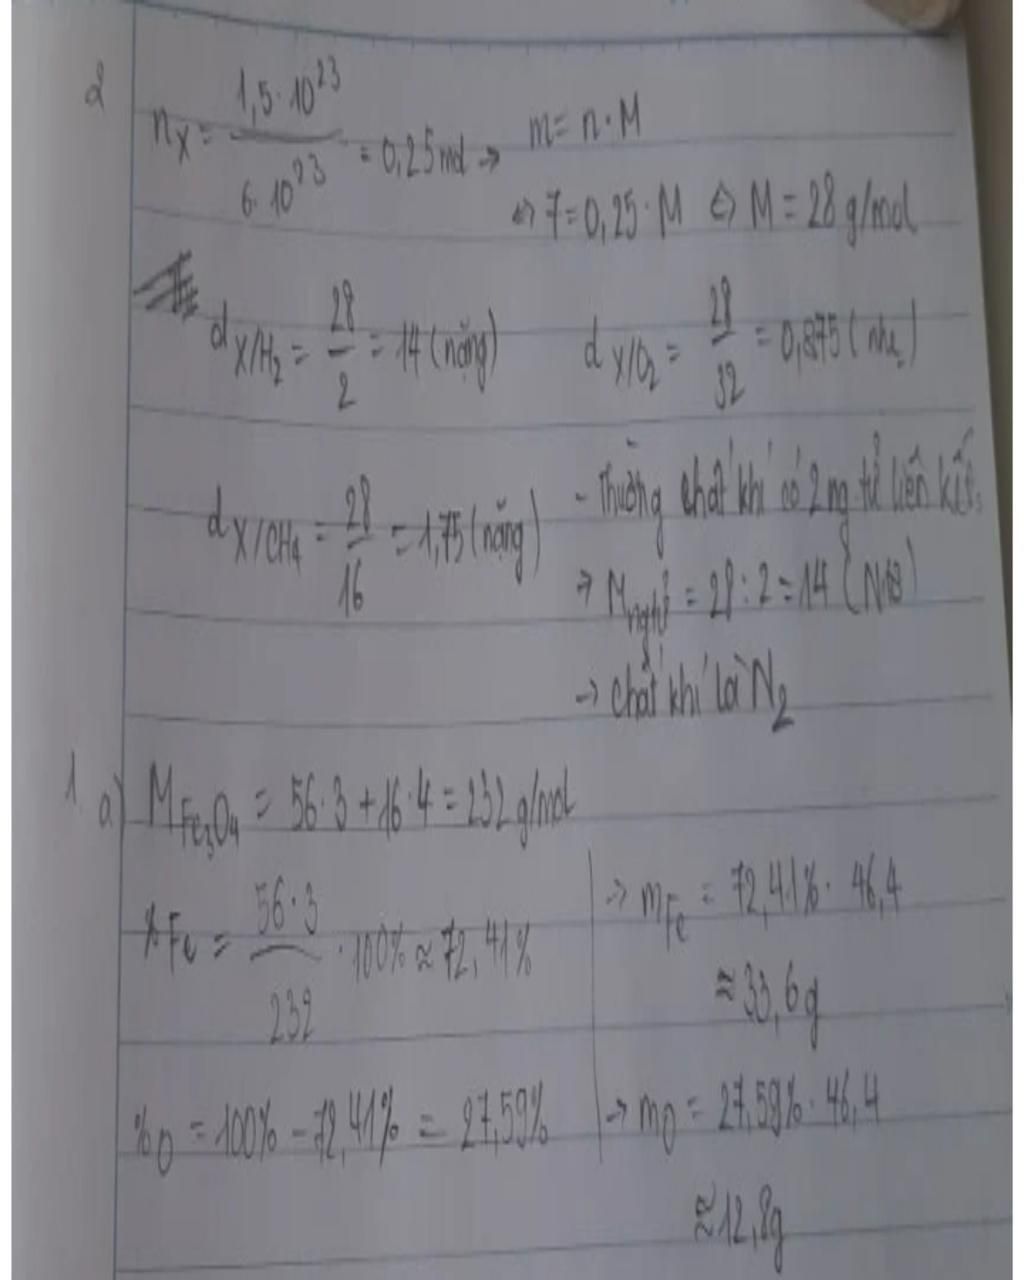 2
nX = 1,5·10^23 / 6·10^23 = 0,25 mol → m = n·M
⇔ 7 = 0,25·M ⇔ M = 28 g/mol
d X/H2 = 28/2 = 14 (nặng) d X/O2 = 28/32 = 0,875 (nhẹ)
d X/CH4 = 28/16 = 1,75 (nặng) - Thường chất khí có 2 ng.tử liên kết
→ M ngtử = 28 : 2 = 14
→ chất khí là N2
1. a) M Fe3O4 = 56·3 + 16·4 = 232 g/mol
% Fe = 56·3 / 232 · 100% ≈ 72,41% → mFe = 72,41% · 46,4
≈ 33,6g
%O = 100% - 72,41% = 27,59% → mO = 27,59% · 46,4
≈ 12,8g